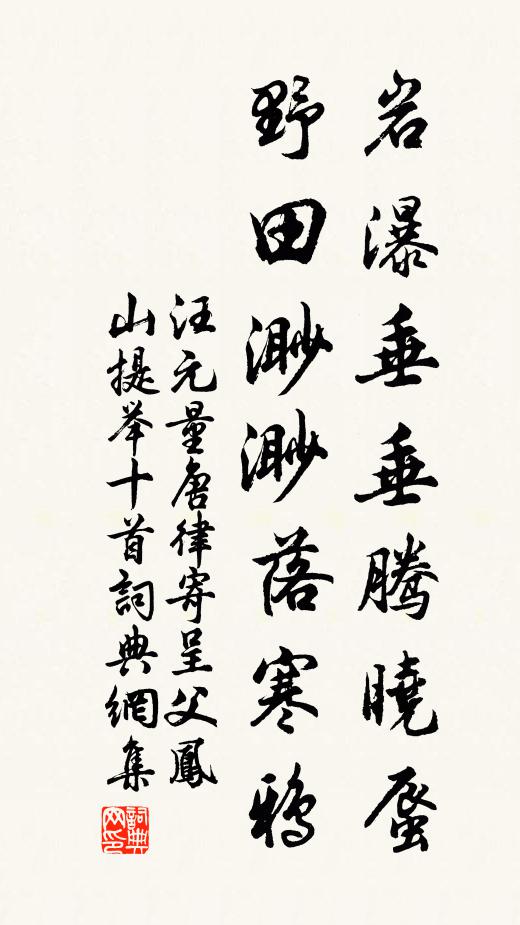 岩瀑垂垂腾晓蜃
野田渺渺落寒鸦
汪元量唐律寄呈父鳳
山提举十首詞典網集
詞典网印